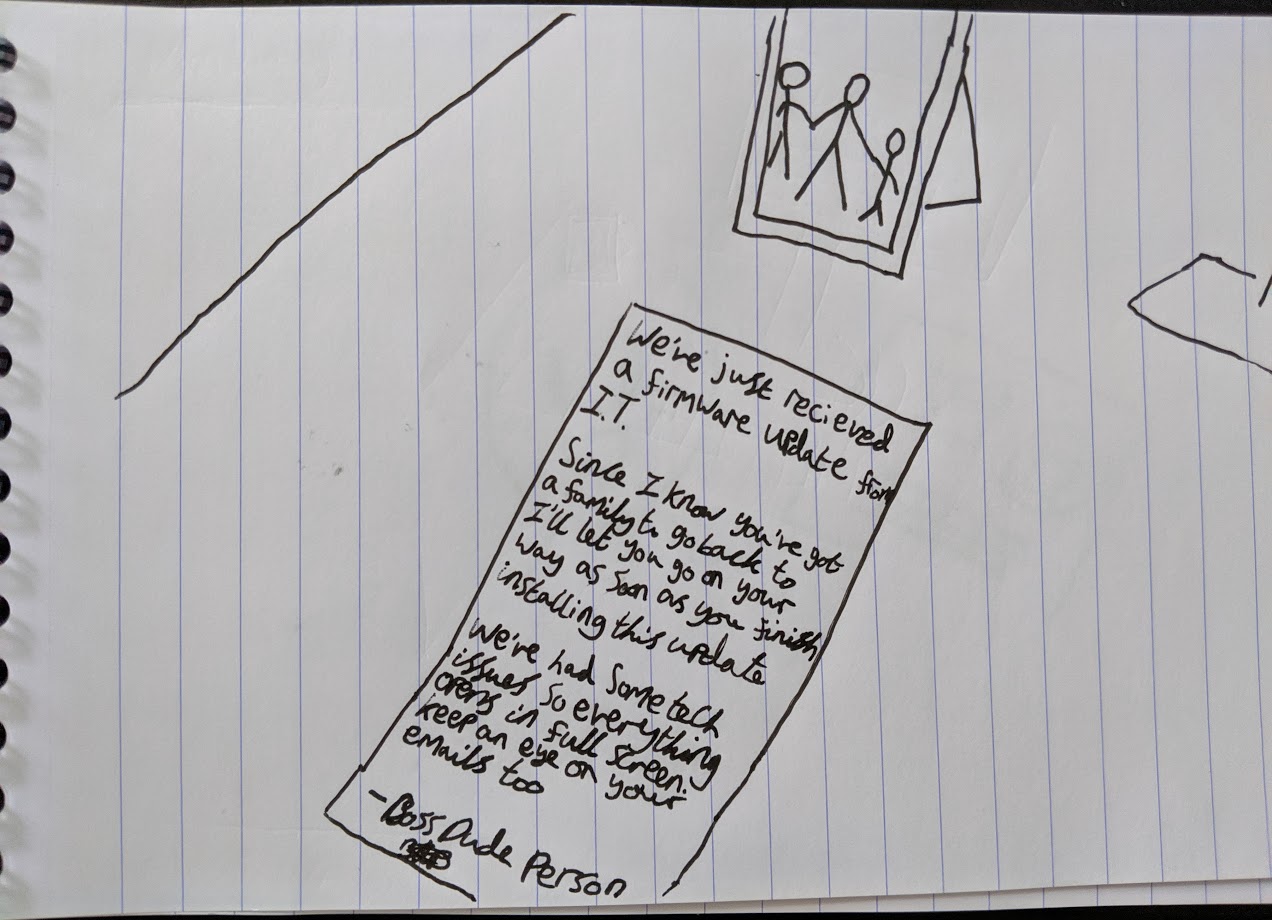 We're just recieved
a firmware update from
I.T.
Since I know you've got
a family to go back to
I'll let you go on your
way as soon as you finish
installing this update
We've had some tech
issues so everything
opens in full screen.
keep an eye on your
emails too
-Boss Dude Person